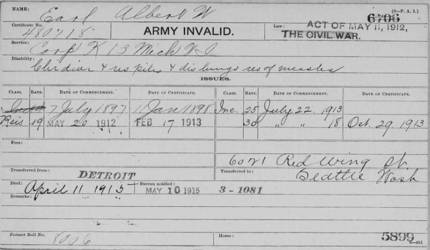 6706
Earl Albert W
Certificate No.
480718
ARMY INVALID.
ACT OF MAY 11, 1912,
THE CIVIL WAR.
Service:
Corp K 13 Mich V. I
Disability:
Chr diar & res piles & dis lungs res of measles
ISSUES.
CLASS. RATE. DATE OF COMMENCEMENT. DATE OF CERTIFICATE. CLASS. RATE. DATE OF COMMENCEMENT. DATE OF CERTIFICATE.
7 July 1897 11 Jany 1898 Inc. 25 July 22 1913
Reis 19 MAY 20 1912 FEB 17 1913 30 " " 18 Oct. 29 1913
6021 Red Wing St
Seattle Wash
Transferred from DETROIT Transferred to
Died: April 11 1915 Bureau notified MAY 10 1915 3-1081
Remarks:
Former Roll No. Home: 5899